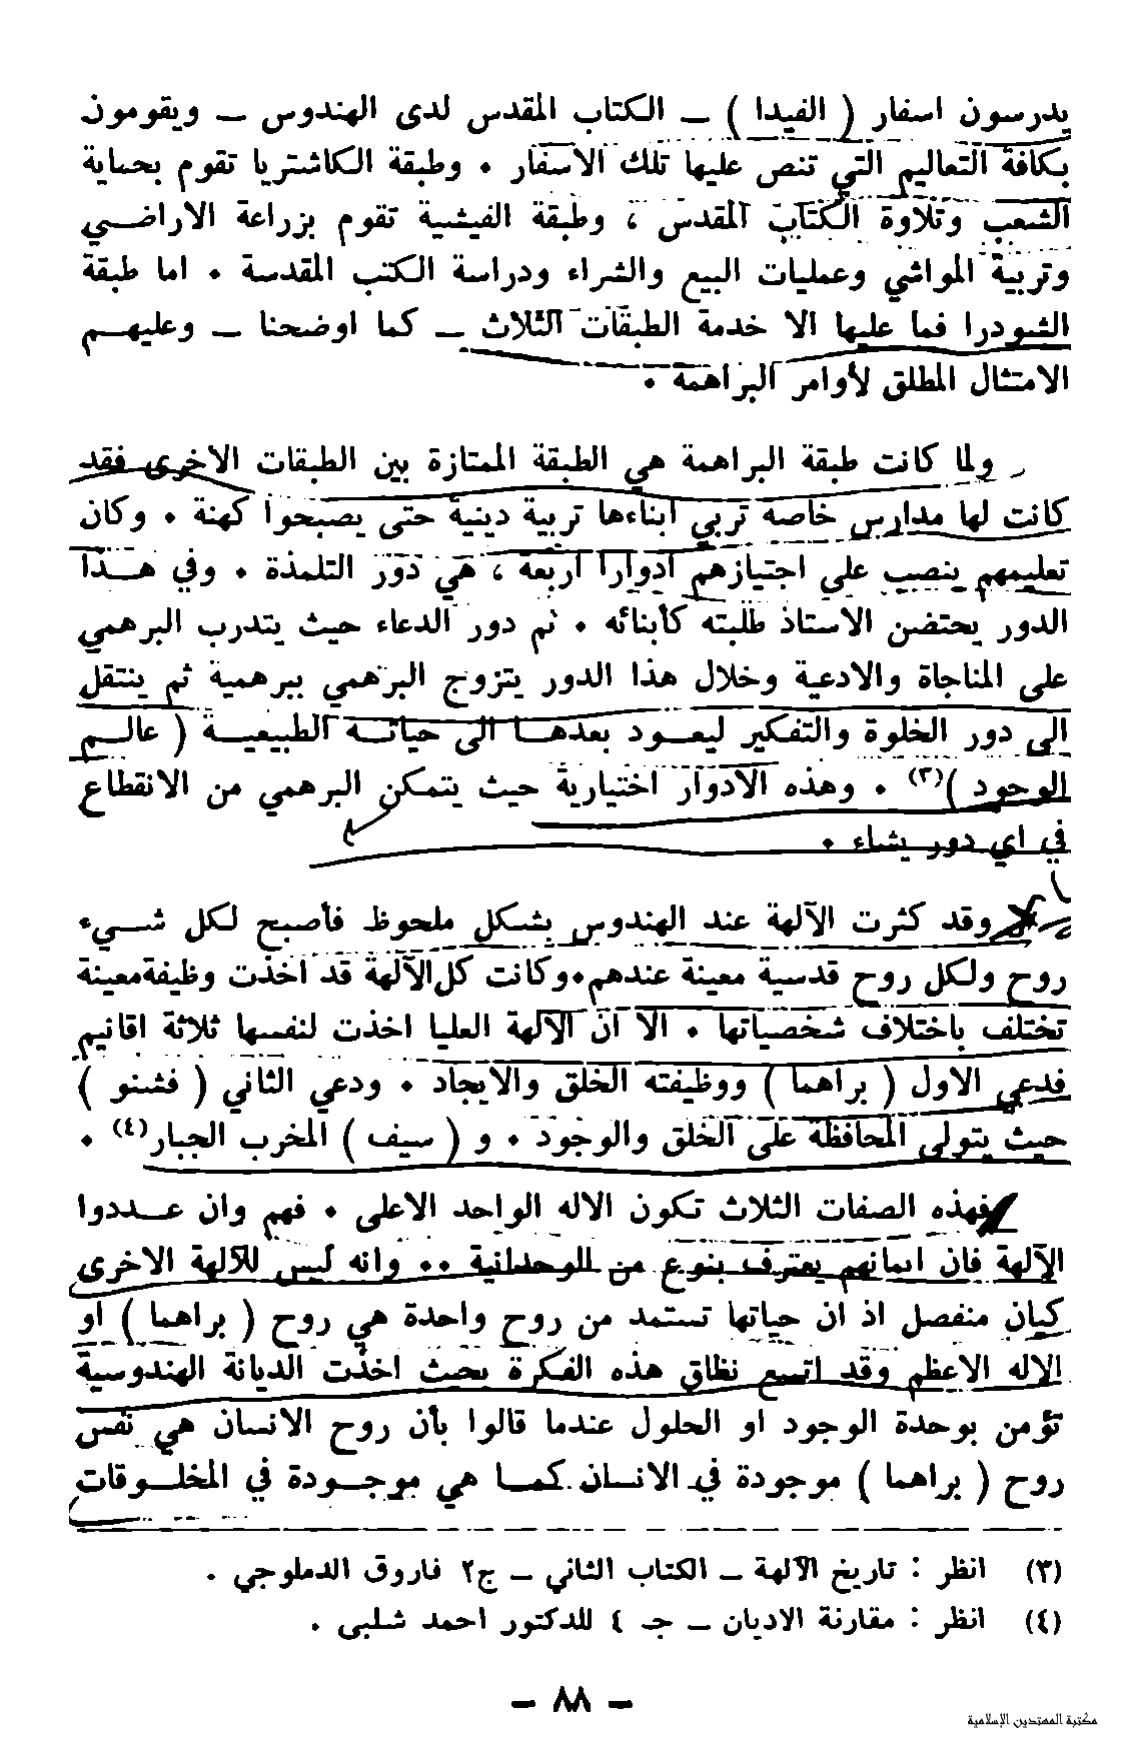 يدرسون اسفار ( الفيدا ) ــ الكتاب المقدس لدى الهندوس ــ ويقومون
بكافة التعاليم التي تنص عليها تلك الاسفار ٠ وطبقة الكاشتريا تقوم بحماية
الشعب وتلاوة الكتاب المقدس ، وطبقة الفيشية تقوم بزراعة الاراضــي
وتربية المواشي وعمليات البيع والشراء ودراسة الكتب المقدسة ٠ اما طبقة
الشودرا فما عليها الا خدمة الطبقات الثلاث ــ كما اوضحنا ــ وعليهــم
الامتثال المطلق لأوامر البراهمة ٠
ولما كانت طبقة البراهمة هي الطبقة الممتازة بين الطبقات الاخرى فقد
كانت لها مدارس خاصة تربي ابناءها تربية دينية حتى يصبحوا كهنة ٠ وكان
تعليمهم ينصب على اجتيازهم ادوارا اربعة ، هي دور التلمذة ٠ وفي هــذا
الدور يحتضن الاستاذ طلبته كأبنائه ٠ ثم دور الدعاء حيث يتدرب البرهمي
على المناجاة والادعية وخلال هذا الدور يتزوج البرهمي ببرهمية ثم ينتقل
الى دور الخلوة والتفكير ليعــود بعدهــا الى حياتــه الطبيعيــة ( عالــم
الوجود )(٣) ٠ وهذه الادوار اختيارية حيث يتمكن البرهمي من الانقطاع
في اي دور يشاء ٠
وقد كثرت الآلهة عند الهندوس بشكل ملحوظ فأصبح لكل شــيء
روح ولكل روح قدسية معينة عندهم٠وكانت كل الآلهة قد اخذت وظيفة معينة
تختلف باختلاف شخصياتها ٠ الا ان الآلهة العليا اخذت لنفسها ثلاثة اقانيم
فدعي الاول ( براهما ) ووظيفته الخلق والايجاد ٠ ودعي الثاني ( فشنو )
حيث يتولى المحافظة على الخلق والوجود ٠ و ( سيف ) المخرب الجبار(٤) ٠
فهذه الصفات الثلاث تكون الاله الواحد الاعلى ٠ فهم وان عــددوا
الآلهة فان ايمانهم يعترف بنوع من الوحدانية ٠٠ وانه ليس للآلهة الاخرى
كيان منفصل اذ ان حياتها تستمد من روح واحدة هي روح ( براهما ) او
الاله الاعظم وقد اتسع نظاق هذه الفكرة بحث اخذت الديانة الهندوسية
تؤمن بوحدة الوجود او الحلول عندما قالوا بأن روح الانسان هي نفس
روح ( براهما ) موجودة في الانسان كمــا هي موجــودة في المخلــوقات
(٣) انظر : تاريخ الآلهة ــ الكتاب الثاني ــ ج٢ فاروق الدملوجي ٠
(٤) انظر : مقارنة الاديان ــ جـ ٤ للدكتور احمد شلبي ٠
ــ ٨٨ ــ
مكتبة المهتدين الإسلامية